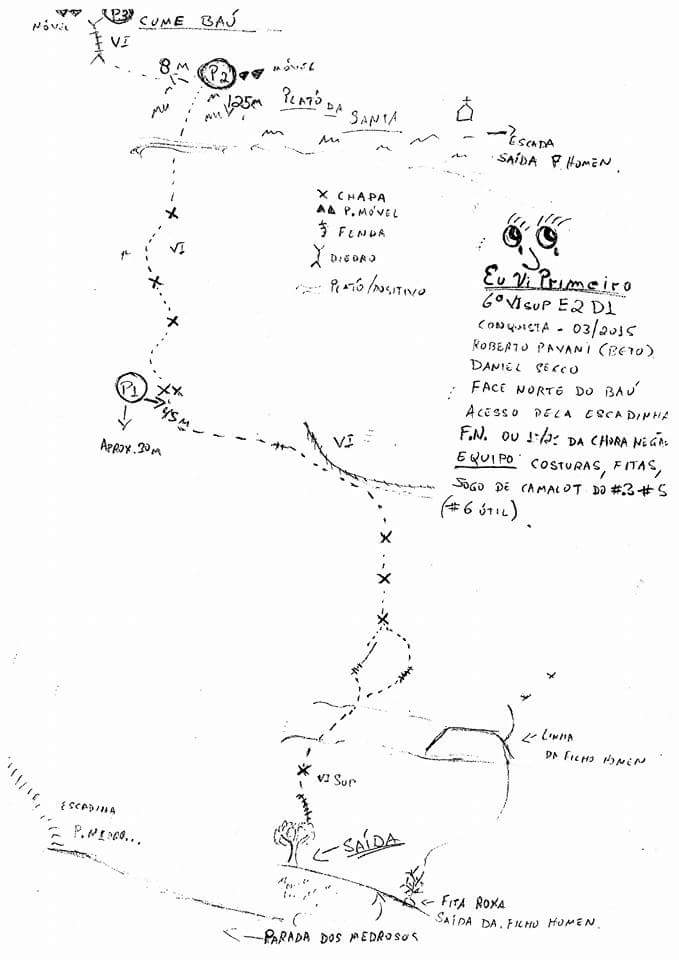 P3
CUME BAÚ
MÓVEL
VI
8 M
P2
MÓVEL
125M
PLATÔ DA
SANTA
ESCADA
SAÍDA P. HOMEN.
CHAPA
P. MÓVEL
FENDA
DIEDRO
PLATÔ/POSITIVO
VI
EU VI PRIMEIRO
6º VISUP E2 D1
CONQUISTA - 03/2015
ROBERTO PAVANI (BETO)
DANIEL SECCO
FACE NORTE DO BAÚ
ACESSO PELA ESCADINHA
F.N. OU DA CHORA NEGÃO
EQUIPO COSTURAS, FITAS,
JOGO DE CAMALOT DO #.3 #5
(#6 ÚTIL).
P1
45M
APROX. 30M
VI
LINHA
DA FILHO HOMEN
VI SUP
ESCADINA
P. NEGRO...
SAÍDA
FITA ROXA
SAÍDA DA. FILHO HOMEN.
PARADA DOS MEDROSOS